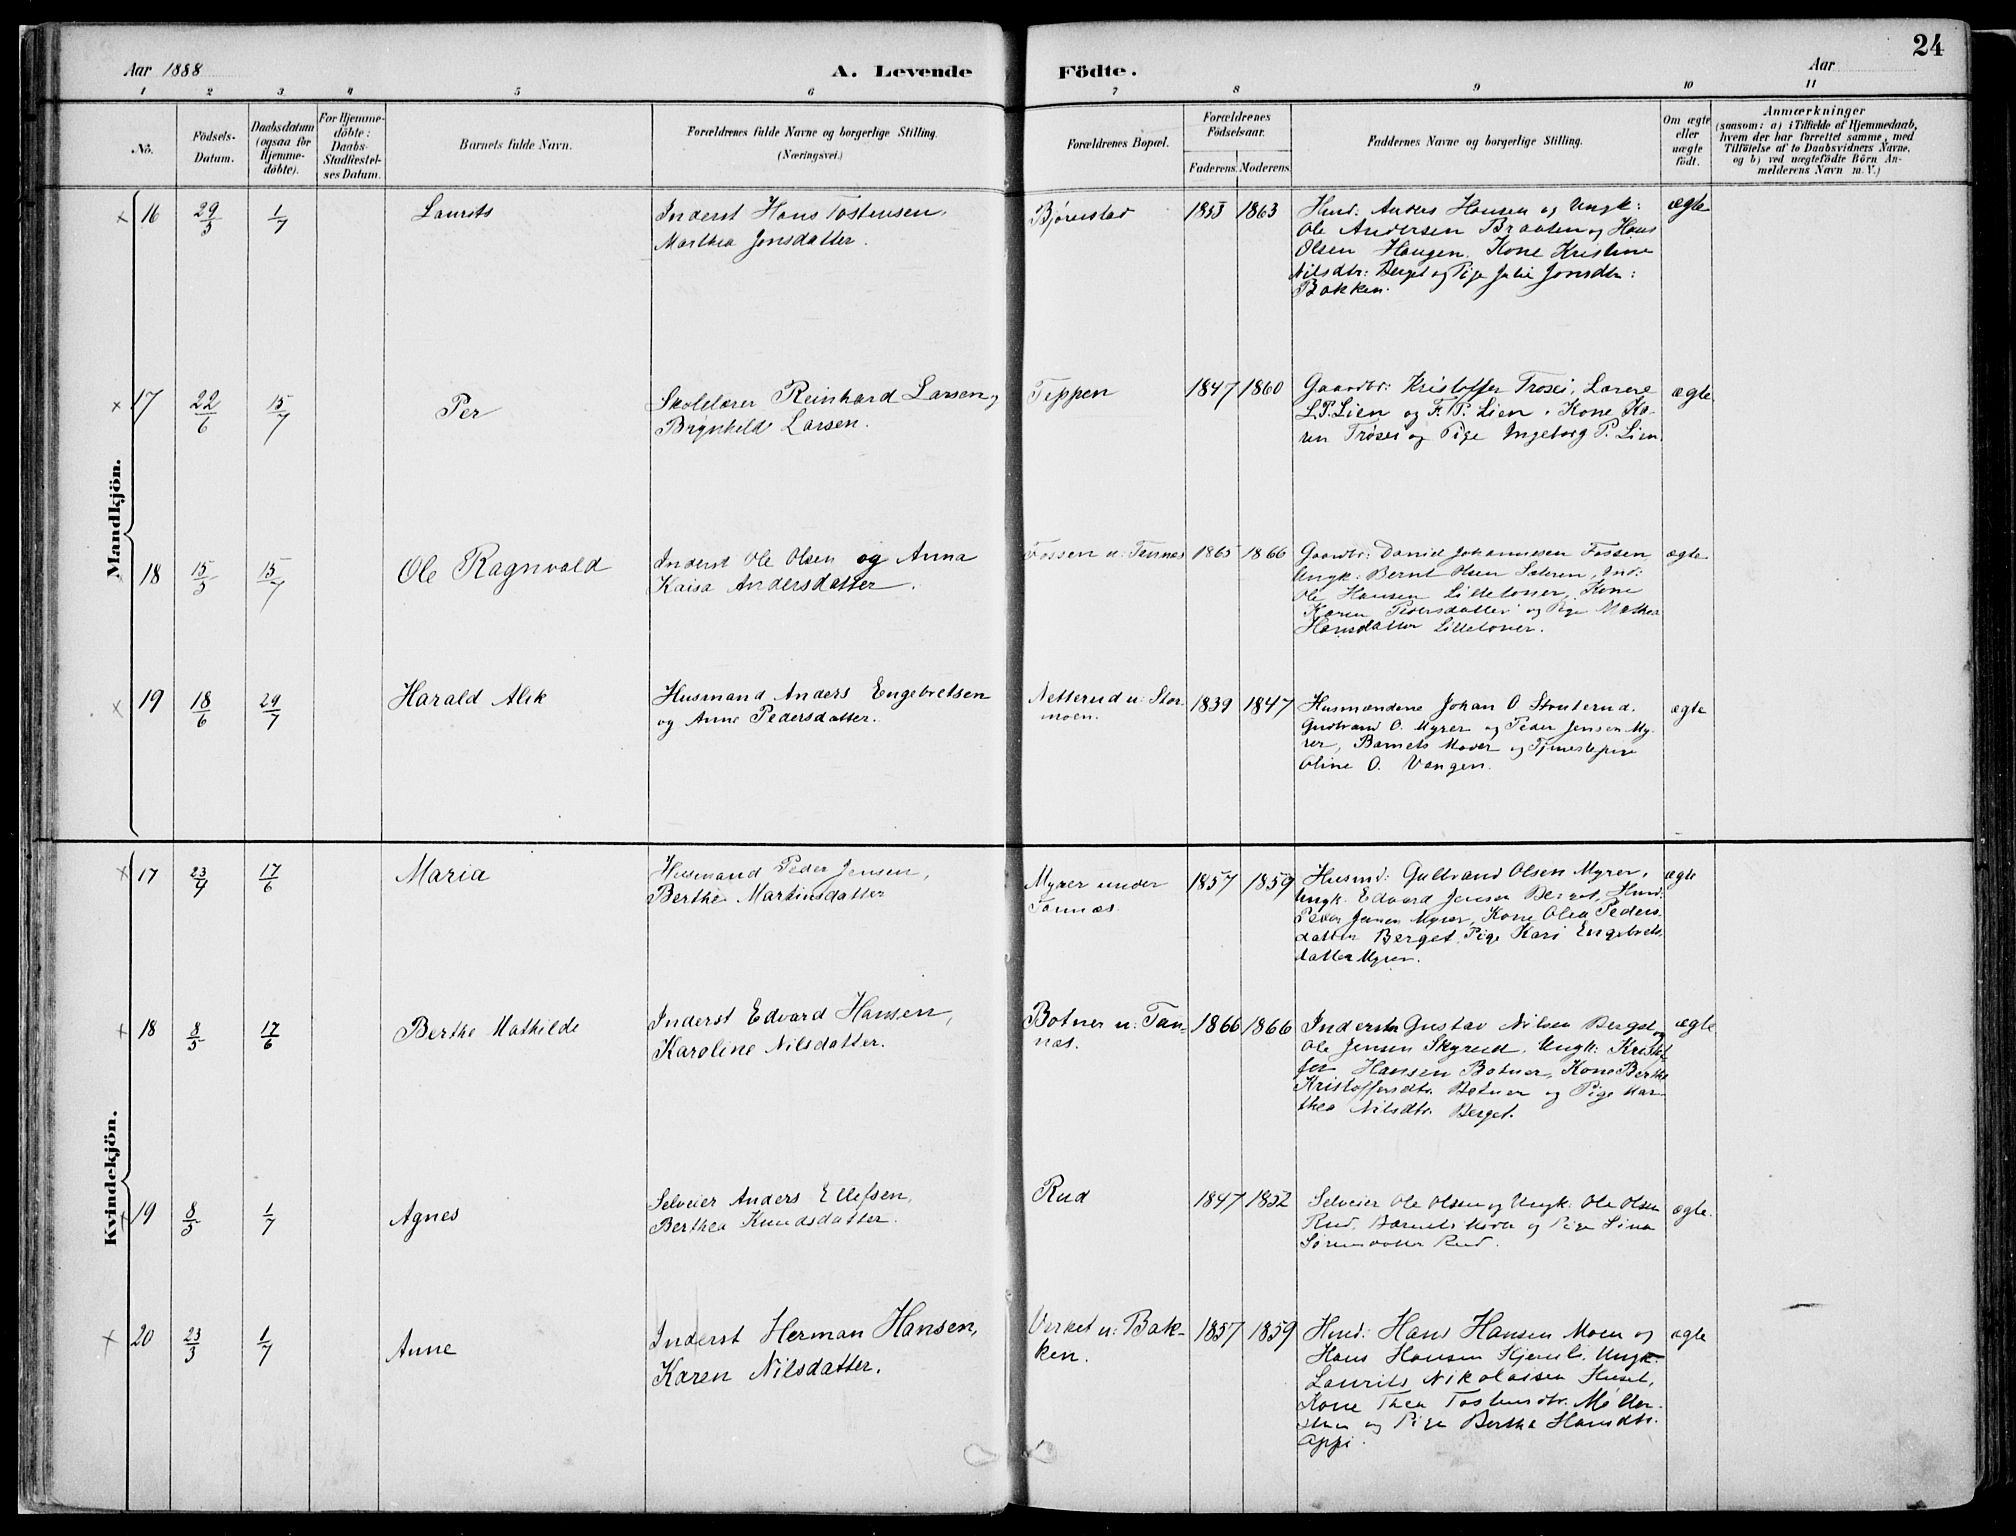 24
Aar 1888
A. Levende
Födte.
Aar
1 2 3 4 5 6 7 8 9 10 11
No.
Födsels-
Datum.
Daabsdatum
(ogsaa for
Hjemme-
döbte).
For Hjemme-
döbte:
Daabs-
Stadfæstel-
ses Datum.
Barnets fulde Navn.
Forældrenes fulde Navne og borgerlige Stilling.
(Næringsvei.)
Forældrenes Bopæl.
Forældrenes
Födselsaar.
Faderens.
Moderens.
Faddernes Navne og borgerlige Stilling.
Om ægte
eller
uægte
födt.
Anmærkninger
(saasom: a) i Tilfælde af Hjemmedaab,
hvem der har forrettet samme, med
Tilföielse af to Daabsvidners Navne,
og b) ved uægtefödte Börn An-
melderens Navn m. V.)
Mandkjön.
16
29/5
1/7
Laurits
Inderst Hans Tostensen,
Marthea Jonsdatter.
Bjørnstad
1853 1863
Husd: Anders Hansen og Ungk:
Ole Andersen Braaten og Hans
Olsen Haugen. Kone Kristine
Nilsdtr: Berget og Pige Julie Jonsdtr:
Bakken.
ægte
17
22/6
15/7
Per
Skolelærer Reinhard Larsen,
Brynheld Larsen.
Teppen
1847 1860
Gaardbr: Kristoffer Trøsei, Lærere
L.P. Lien og F. P. Lien. Kone Ka-
ren Trøsei og Pige Ingeborg P. Lien.
ægte
18
15/5
15/7
Ole Ragnvald
Inderst Ole Olsen og Anna
Kaisa Andersdatter.
Fossen u: Tannæs
1865 1866
Gaardbr: Daniel Johannesen Fossen
Ungk: Bernt Olsen Sæteren, Ind:
Ole Hansen Lilletoner, Kone
Karen Pedersdatter og Pige Mathea
Hansdatter Lilletoner.
ægte
19
18/6
29/7
Harald Alik
Husmand Anders Engebretsen
og Anne Pedersdatter.
Netterud u: Stor-
moen.
1839 1847
Husmændene Johan O. Struterud.
Gudbrand O. Myrer og Peder Jensen My-
rer, Barnets Moder og Tjenestepige
Oline O. Vangen.
ægte
Kvindekjön.
17
23/4
17/6
Maria
Husmand Peder Jensen,
Berthe Martinsdatter
Myrer under
Tannæs.
1857 1859
Husmd: Gulbrand Olsen Myrer,
Ungk. Edvard Jensen Berget, Husd:
Peder Jensen Myrer, Kone Olea Peders-
datter Berget, Pige Kari Engebrets-
datter Myrer.
ægte
18
8/5
17/6
Berthe Mathilde
Inderst Edvard Hansen,
Karoline Nilsdatter.
Botner u: Tan-
næs.
1866 1866
Inderster Gustav Nilsen Berget og
Ole Jensen Skyrud. Ungk: Kristof-
fer Hansen Botner, Kone Berthe
Kristoffersdtr. Botner og Pige Mar-
thea Nilsdtr. Berget.
ægte
19
8/5
1/7
Agnes
Selveier Anders Ellefsen,
Berthea Knudsdatter.
Rud
1847 1852
Selveier Ole Olsen og Ungk: Ole Olsen
Rud. Barnets Moder og Pige Lina
Sørensdatter Rud.
ægte.
20
23/3
1/7
Anne
Inderst Herman Hansen,
Karen Nilsdatter.
Virket u: Bak-
ken.
1857 1859
Husd: Hans Hansen Moen og
Hans Hansen Ungk:
Laurits Nikolaisen Huset,
Kone Thea Tostensdtr. Møller-
stuen og Pige Berthe Hansdtr.
ægte